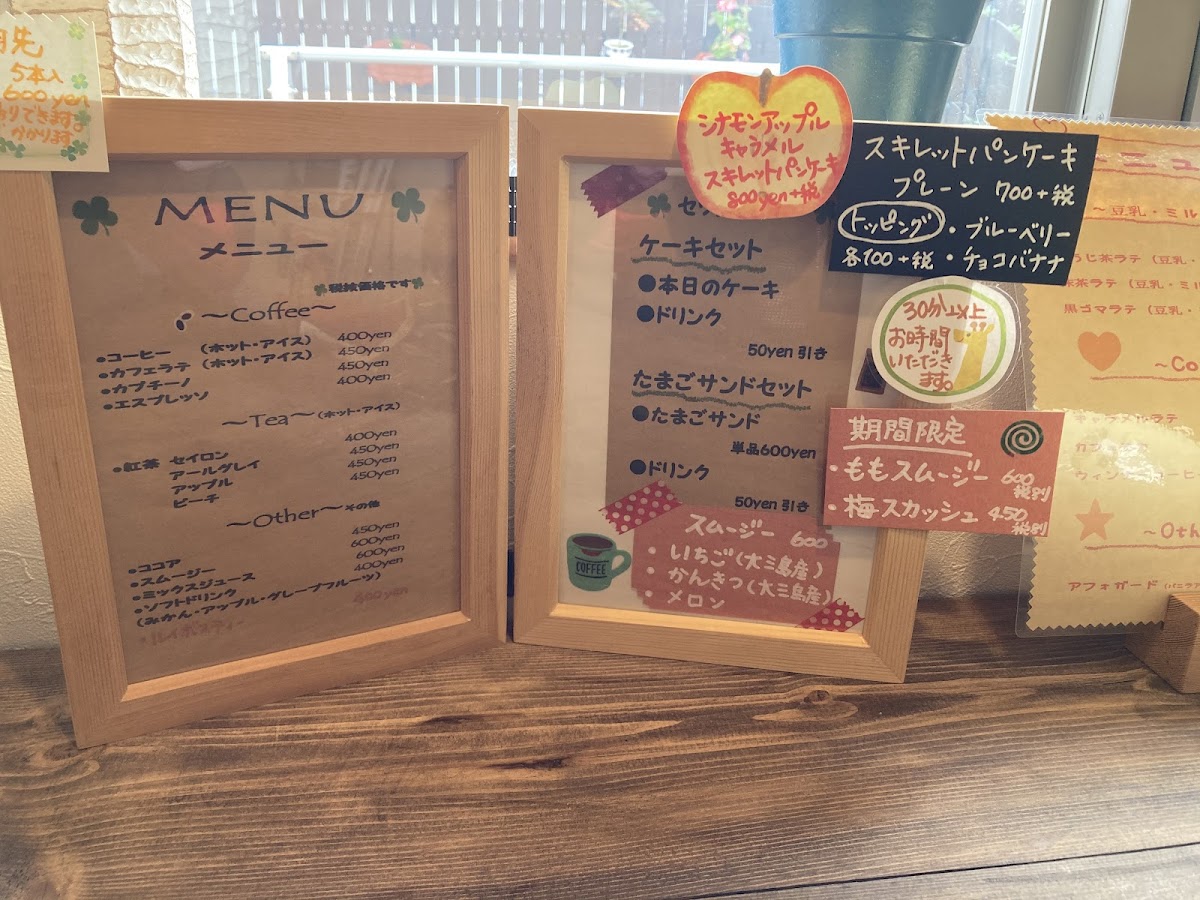 先
5本入
600yen
できます。
かかります
MENU
メニュー
税抜価格です
～Coffee～
●コーヒー （ホット・アイス） 400yen
●カフェラテ （ホット・アイス） 450yen
●カプチーノ 450yen
●エスプレッソ 400yen
～Tea～（ホット・アイス）
●紅茶 セイロン 400yen
アールグレイ 450yen
アップル 450yen
ピーチ 450yen
～Other～その他
●ココア 450yen
●スムージー 600yen
●ミックスジュース 600yen
●ソフトドリンク 400yen
（みかん・アップル・グレープフルーツ）
・ルイボスティー 400yen
シナモンアップル
キャラメル
スキレットパンケーキ
800yen+税
セッ
ケーキセット
●本日のケーキ
●ドリンク
50yen 引き
たまごサンドセット
●たまごサンド
単品600yen
●ドリンク
50yen 引き
スムージー 600
・いちご（大三島産）
・かんきつ（大三島産）
・メロン
COFFEE
スキレットパンケーキ
プレーン 700+税
トッピング ・ブルーベリー
各100+税 ・チョコバナナ
30分以上
お時間
いただき
ます。
期間限定
・ももスムージー 600
税別
・梅スカッシュ 450
税別
ニュ
～豆乳・ミル
うじ茶ラテ（豆乳・
茶ラテ（豆乳・ミル
黒ゴマラテ（豆乳・
～Co
ラテ
カプ
ウィンナーコーヒ
～Oth
アフォガード（バニラ